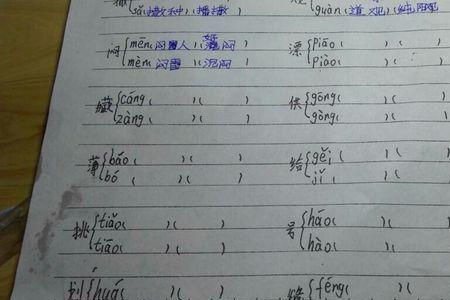 sǎ(撒种)(播撒)
guàn(道观)(
闷 mēn(闷人)(
mèn(闷雷)(沉闷)
漂 piāo(
piào(
藏 cáng( )( )
zàng( )( )
供 gōng( )(
gòng( )(
薄 báo( )( )
bó( )( )
给 gěi( )(
jǐ( )(
挑 tiāo( )( )
tiǎo( )( )
号 háo( )(
hào( )(
划 huá(
缝 féng(